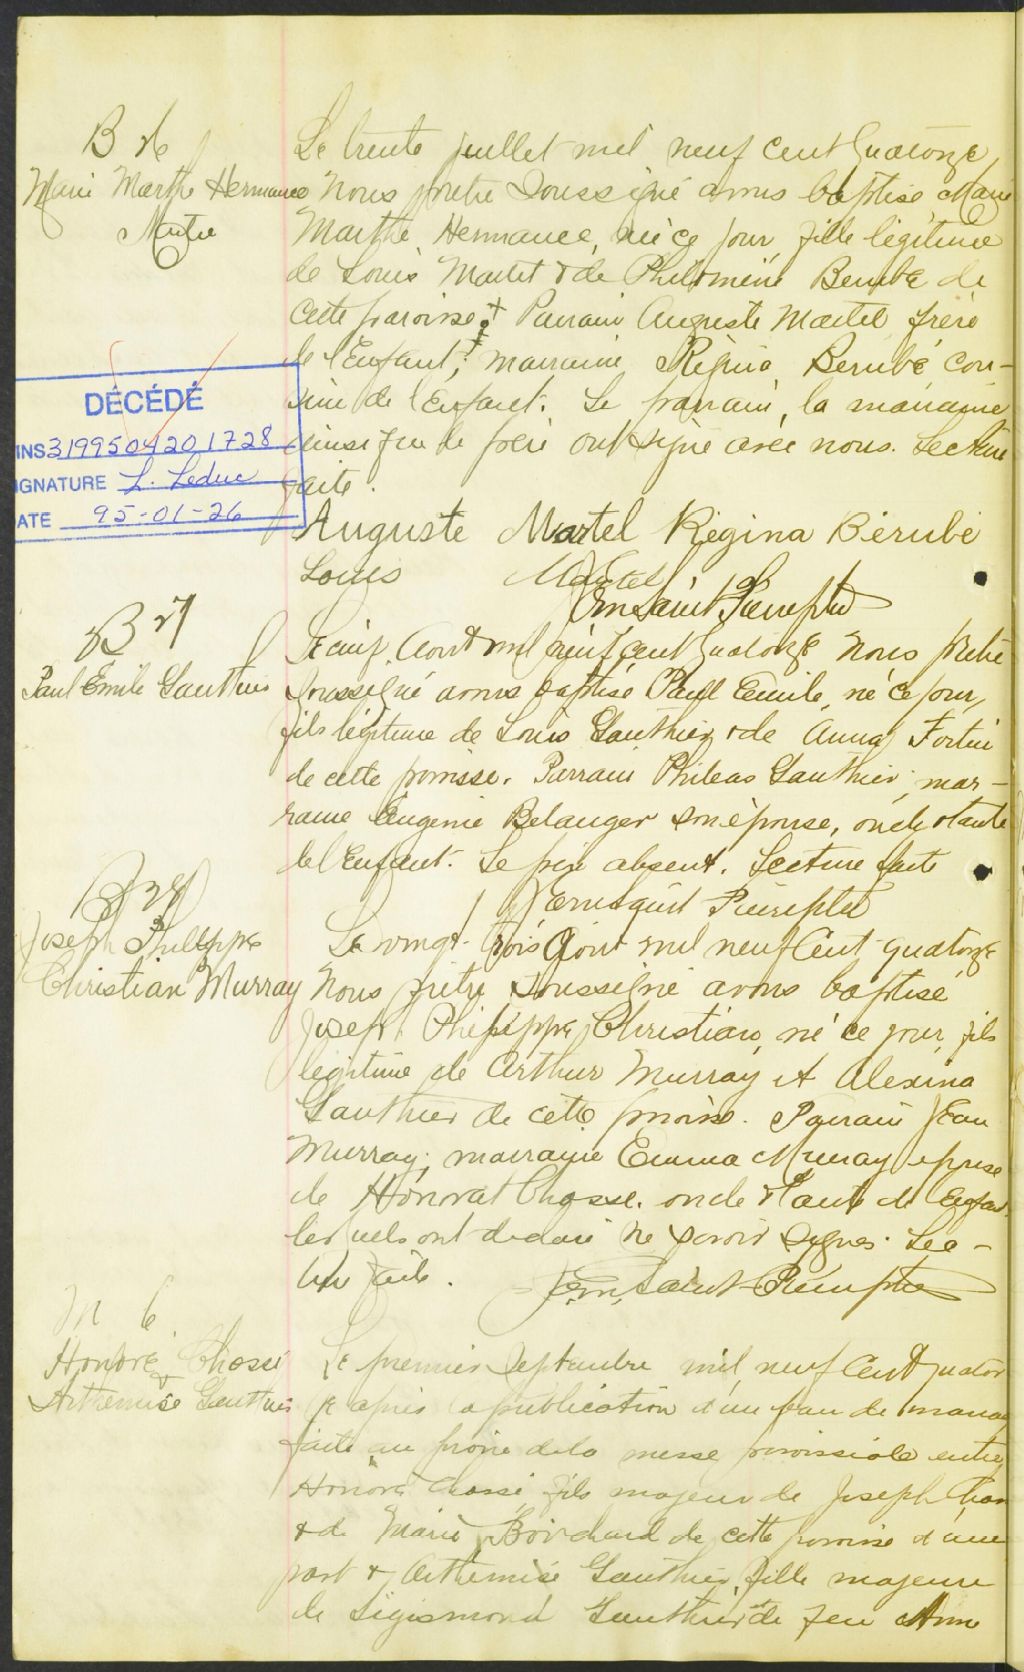 B 26
Marie Marthe Hermance
Le trente juillet mil neuf cent quatorze
Nous prêtre soussigné avons baptisé Marie
Marthe Hermance, née ce jour fille légitime
de Louis Martel & de Philomène Berubé de
cette paroisse Parrain Auguste Martel frère
de l'Enfant; marraine Régina Berubé cou-
sine de l'Enfant. Le parrain, la marraine
ainsi que le père ont signé avec nous. Lecture
faite.
DÉCÉDÉ
INS 3199504201728
IGNATURE L. Leduc
ATE 95-01-26
Auguste Martel Régina Bérubé
Louis Martel
B 27
Paul Emile Gauthier
Le cinq Aout mil neuf cent quatorze Nous prêtre
soussigné avons baptisé Paul Emile, né ce jour,
fils légitime de Louis Gauthier & de Anna Fortin
de cette paroisse. Parrain Phileas Gauthier, mar-
raine Eugenie Belanger son épouse, oncle & tante
de l'Enfant. Le père absent. Lecture faite
B 28
Joseph Philippe
Christian Murray
Le vingt-trois Aout mil neuf cent quatorze
Nous prêtre soussigné avons baptisé
Joseph Philippe Christian, né ce jour, fils
légitime de Arthur Murray et Alexina
Gauthier de cette paroisse. Parrain Jean
Murray; marraine Emma Murray épouse
de Honorat Chasse. oncle & tante de Enfant
lesquels ont déclaré ne savoir signer. Lec-
ture faite.
M 6
Honoré Chassé
&
Arthemise Gauthier
Le premier Septembre mil neuf cent quator
ze après la publication d'un ban de mariage
faite au prone de la messe paroissiale entre
Honoré Chassé, fils majeur de Joseph Chassé
& de Marie Bouchard de cette paroisse d'une
part & Arthemise Gauthier, fille majeure
de Sigismond Gauthier & de feu Anne